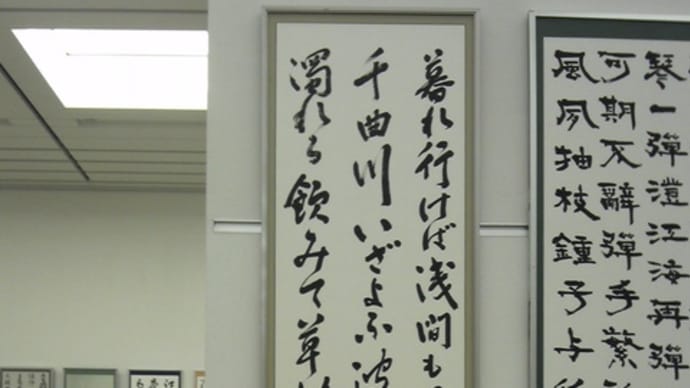 暮れ行けば浅間も
千曲川いざよふ波
濁れる飲みて草
琴一彈澄江海再彈
可期不辭彈手繁
風夙抽枝鍾子与